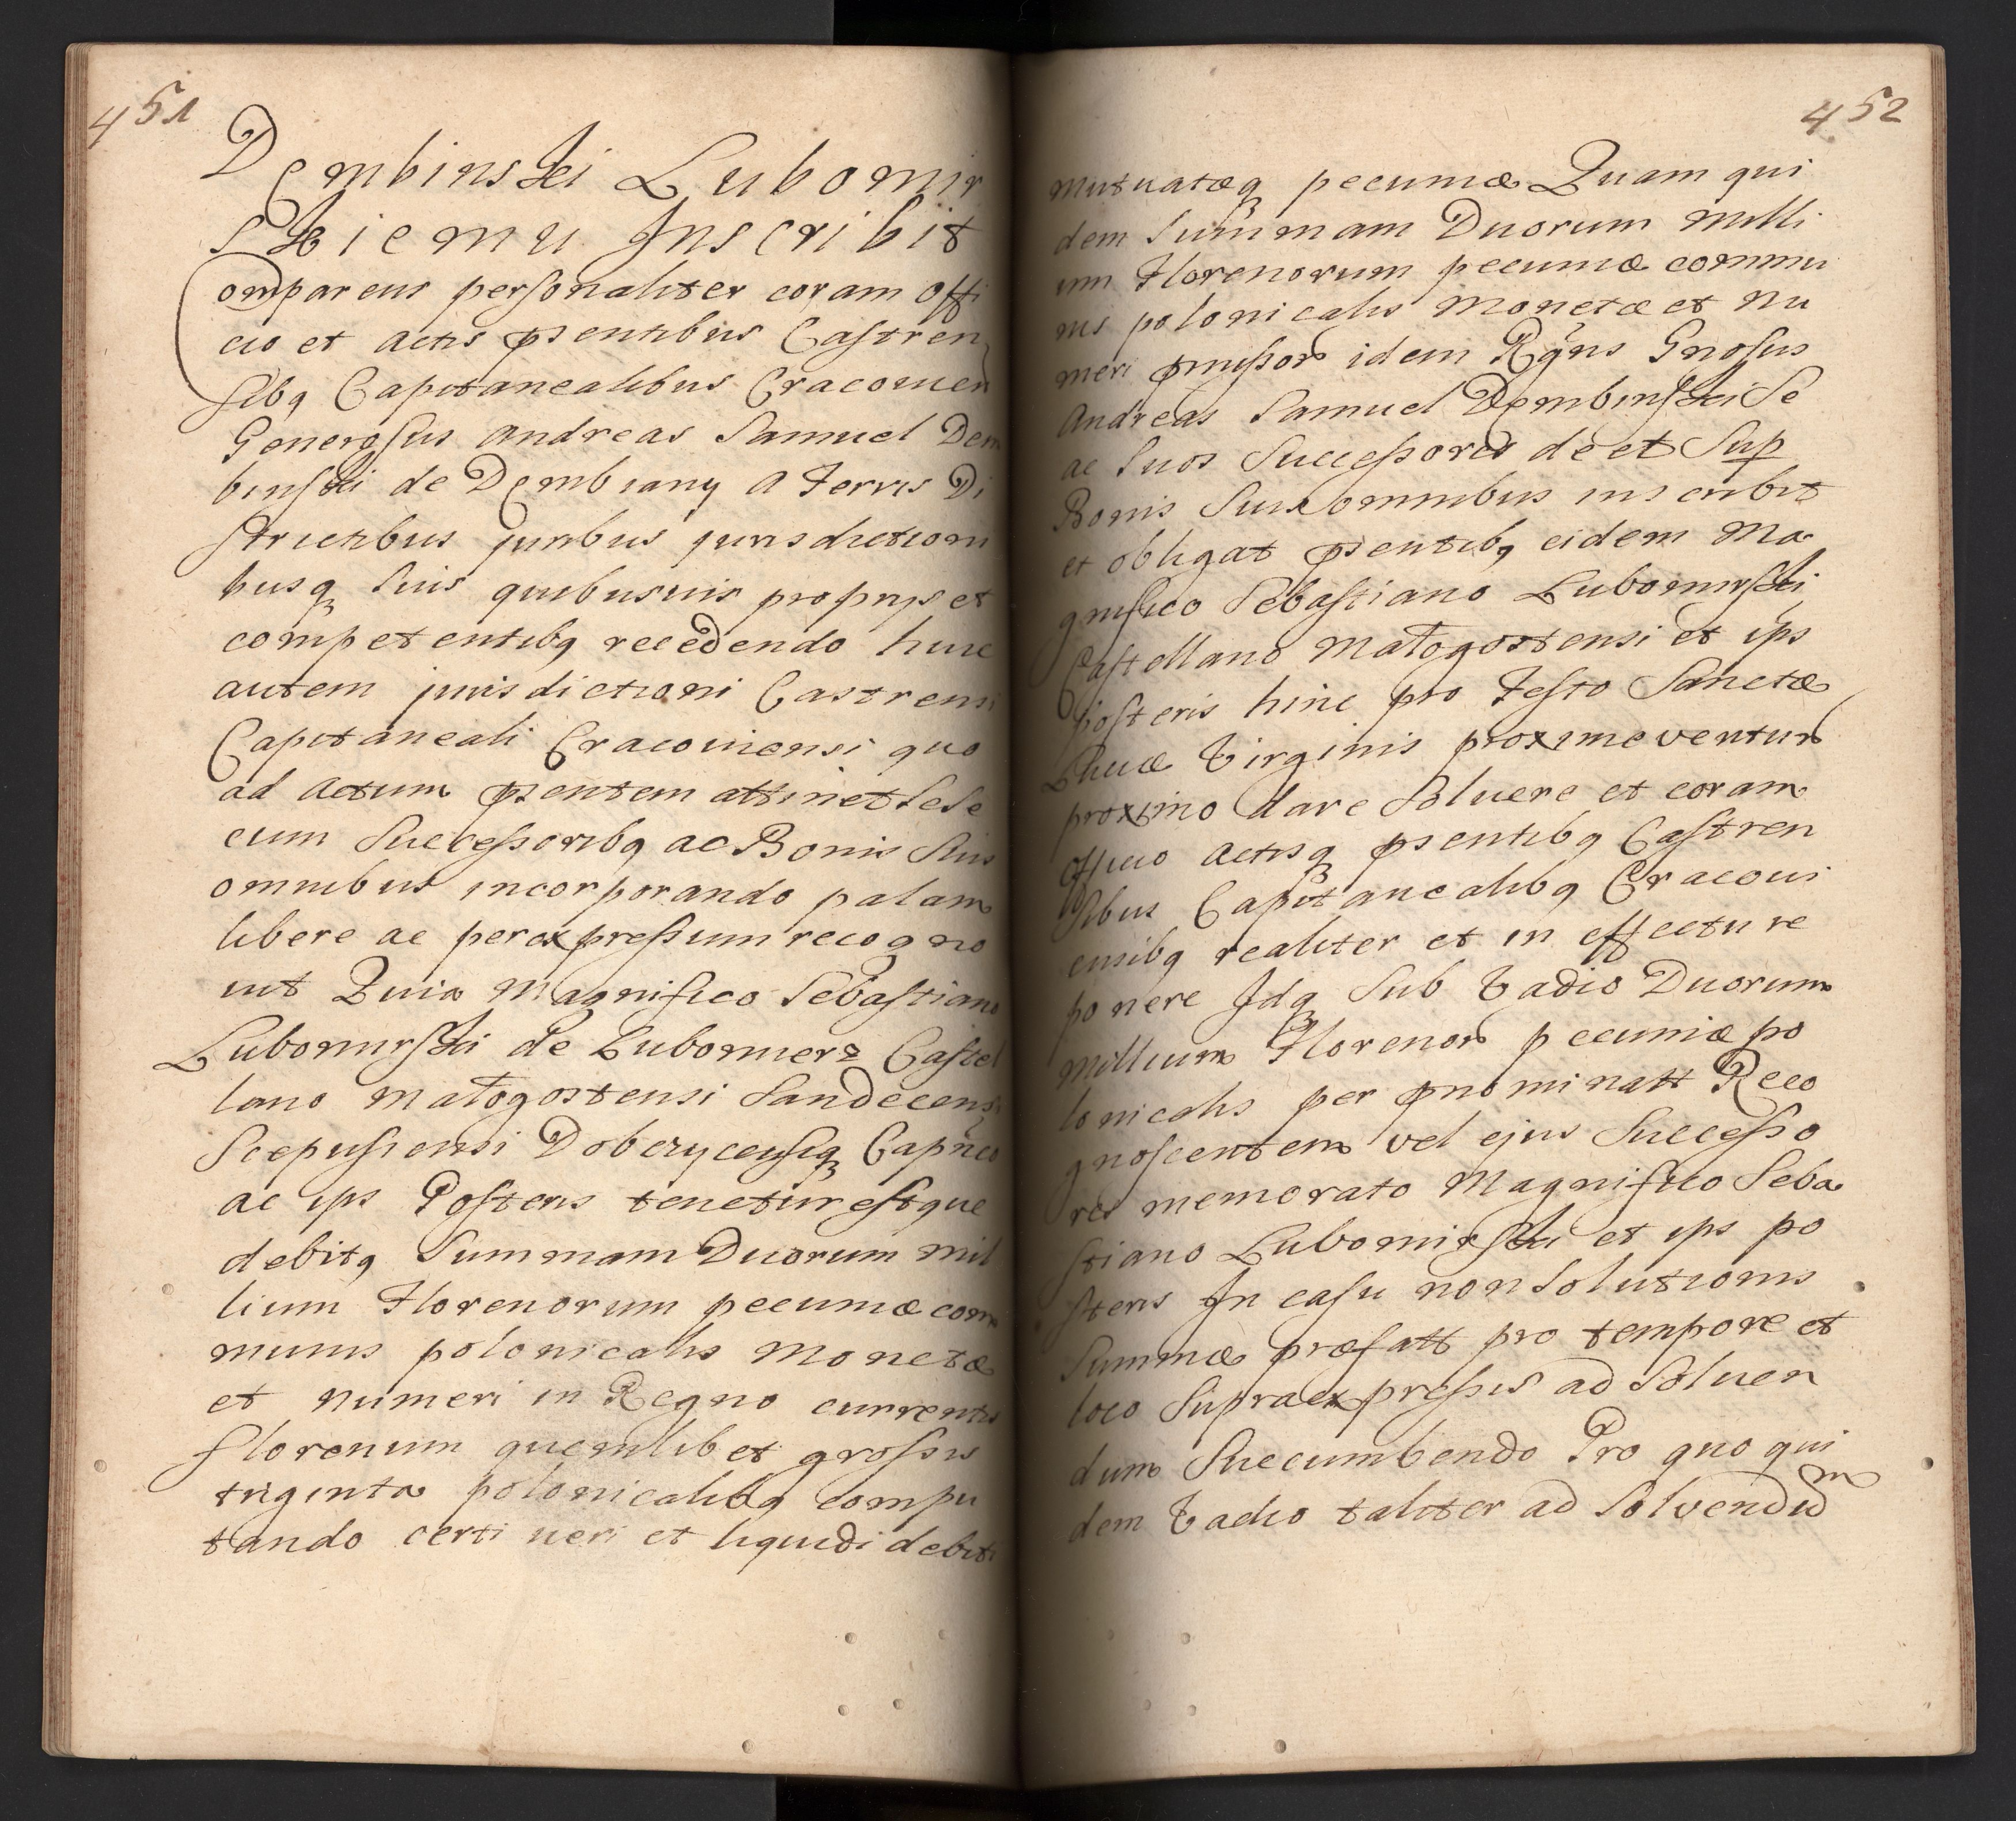 451
Dembinski Lubomir
skiemu Inscribit
Comparens personaliter coram offi
cio et actis psentibus Castren
sibq Capitanealibus Cracovien
Generosus Andreas Samuel Dem
binski de Dembiany a Terris Di
strictibus juribus jurisdictioni
busq suis quibusvis proprys et
competentibq recedendo huic
autem jurisdictioni Castrensi
Capitaneali Cracoviensi quo
ad actum psentem attinet sese
cum Successoribq ac Bonis suis
omnibus incorporando palam
libere ac per expressum recogno
vit Quia Magnifico Sebastiano
Lubomirski de Lubomierz Castel
lano Małogostensi Sandecensi
Scepusiensi Dobczycensiq Capneo
ac ips Posteris tenetur estque
debitq Summam Duorum mil
lium Florenorum pecuniæ com
munis polonicalis Monetæ
et numeri in Regno currentis
florenum quemlibet grossis
triginta polonicalibq compu
tando certi veri et liquidi debiti
452
Mutuatæq pecuniæ Quam qui
dem Summam Duorum Milli
um Florenorum pecuniæ commu
nis polonicalis Monetæ et Nu
meri pmissor idem Rgns Gnosus
Andreas Samuel Dembinski Se
ac Suos Successores de et Sup
Bonis Suis omnibus inscribit
et obligat psentibq eidem Ma
gnifico Sebastiano Lubomirski
Castellano Małogostensi et ips
posteris hinc pro Festo Sanctæ
Luciæ Virginis proxime ventur
proximo dare Solvere et coram
officio actisq psentibq Castren
sibus Capitanealibq Cracovi
ensibq realiter et in effectu re
ponere Idq Sub Vadio Duorum
Millium Florenor pecuniæ po
lonicalis per pnominatt Reco
gnoscentem vel ejus Successo
res memorato Magnifico Seba
stiano Lubomirski et ips po
steris In casu non Solutionis
Summæ præfatt pro tempore et
loco Supra expressis ad Solven
dum Succumbendo Pro quo qui
dem Vadio taliter ad Solvendum